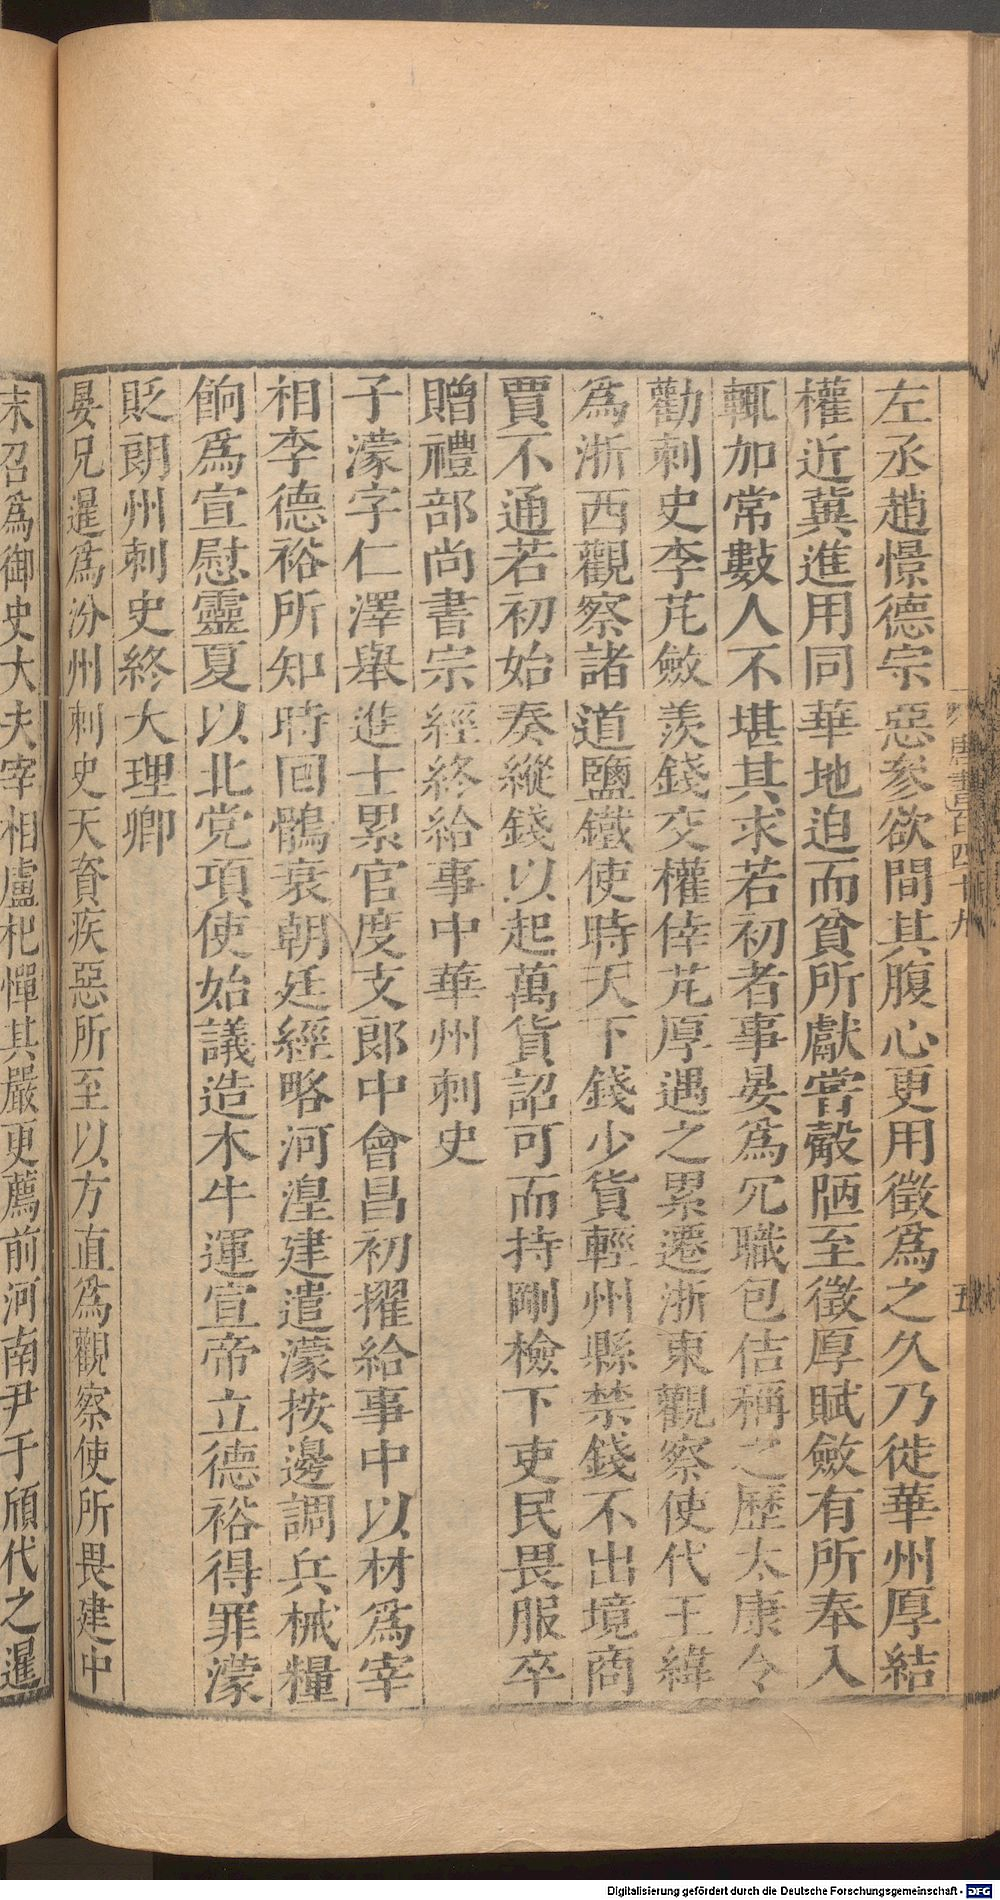 左丞趙憬德宗惡參欲間其腹心更用徵爲之久乃徙華州厚結
權近冀進用同華地迫而貧所獻嘗觳陋至徵厚賦斂有所奉入
輒加常數人不堪其求若初者事晏爲冗職包佶稱之歷太康令
勸刺史李芃斂羨錢交權倖芃厚遇之累遷浙東觀察使代王緯
爲浙西觀察諸道鹽鐵使時天下錢少貨輕州縣禁錢不出境商
賈不通若初始奏縱錢以起萬貨詔可而持剛檢下吏民畏服卒
贈禮部尚書宗經終給事中華州刺史
子濛字仁澤舉進士累官度支郎中會昌初擢給事中以材爲宰
相李德裕所知時回鶻衰朝廷經略河湟建遣濛按邊調兵械糧
餉爲宣慰靈夏以北党項使始議造木牛運宣帝立德裕得罪濛
貶朗州刺史終大理卿
晏兄暹爲汾州刺史天資疾惡所至以方直爲觀察使所畏建中
末召爲御史大夫宰相盧杞憚其嚴更薦前河南尹于頎代之暹
唐書百四十九
五
Digitalisierung gefördert durch die Deutsche Forschungsgemeinschaft - DFG